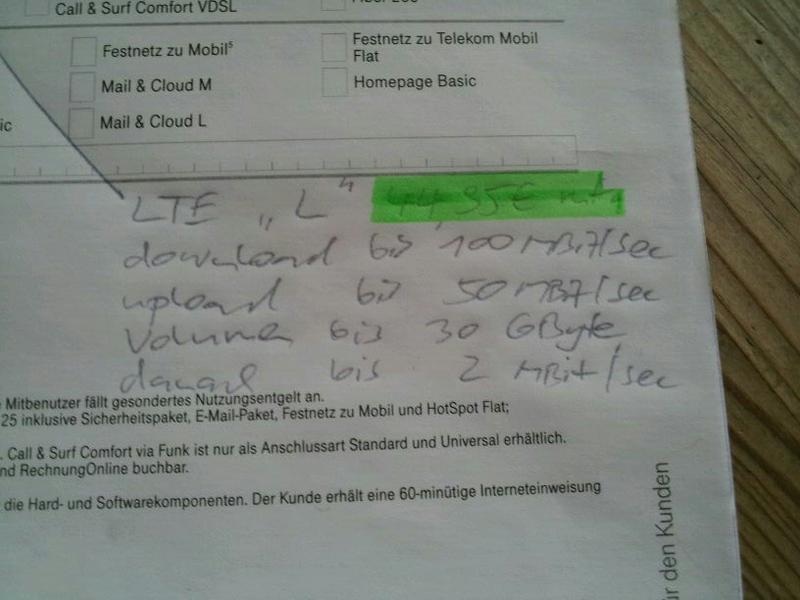 Call & Surf Comfort VDSL
Festnetz zu Mobil⁵
Festnetz zu Telekom Mobil
Flat
Mail & Cloud M
Homepage Basic
ic
Mail & Cloud L
LTE „L" 44,95€ mtl
download bis 100 MBit/sec
upload bis 50 MBit/sec
Volumen bis 30 GByte,
danach bis 2 MBit/sec
Mitbenutzer fällt gesondertes Nutzungsentgelt an.
25 inklusive Sicherheitspaket, E-Mail-Paket, Festnetz zu Mobil und HotSpot Flat;
. Call & Surf Comfort via Funk ist nur als Anschlussart Standard und Universal erhältlich.
nd RechnungOnline buchbar.
die Hard- und Softwarekomponenten. Der Kunde erhält eine 60-minütige Interneteinweisung
ür den Kunden